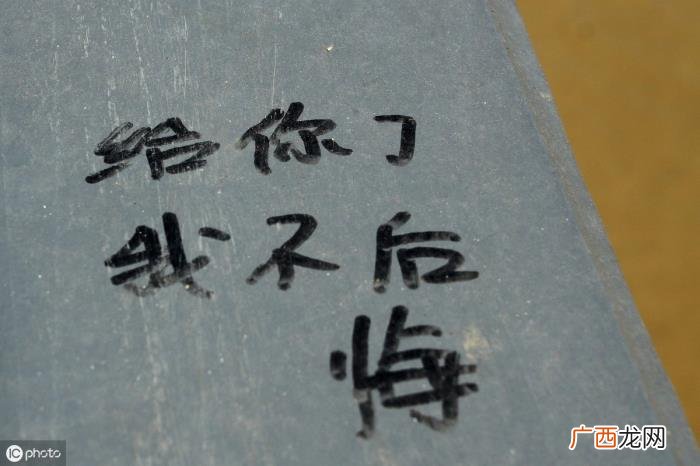 给你了
我不后
悔
iC photo
广西龙网